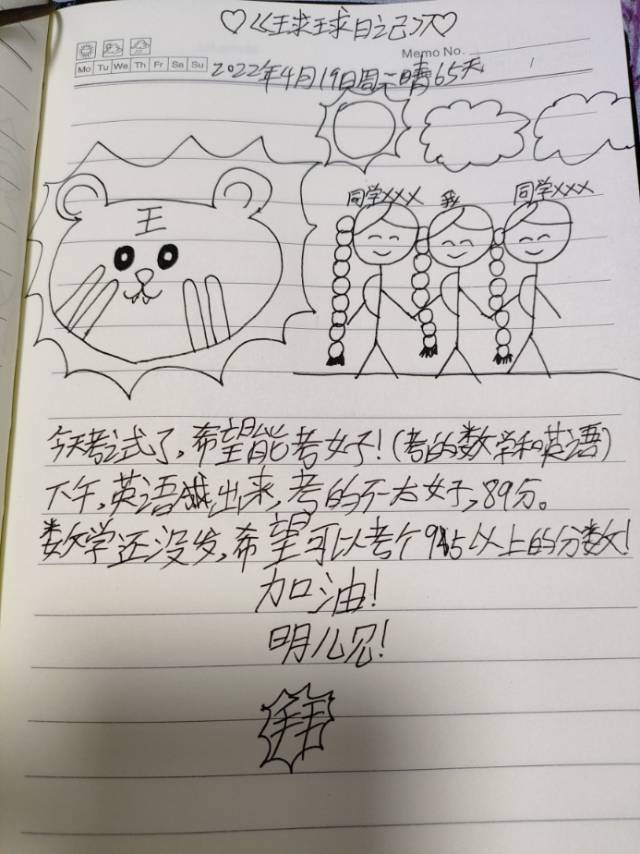 ♡《球球日记》♡
Memo No.
Mo Tu We Th Fr Sa Su
2022年4月19日周二晴65天
同学××× 我 同学×××
王
今天考试了,希望能考好!(考的数学和英语)
下午,英语成出来,考的不太好,89分。
数学还没发,希望可以考个95以上的分数!
加油!
明儿见!
拜